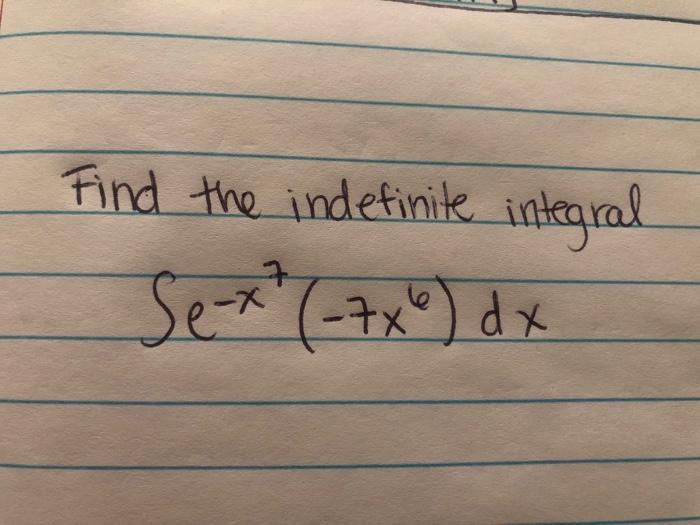 Find the indefinite integral
∫e^{-x^7} (-7x^6) dx